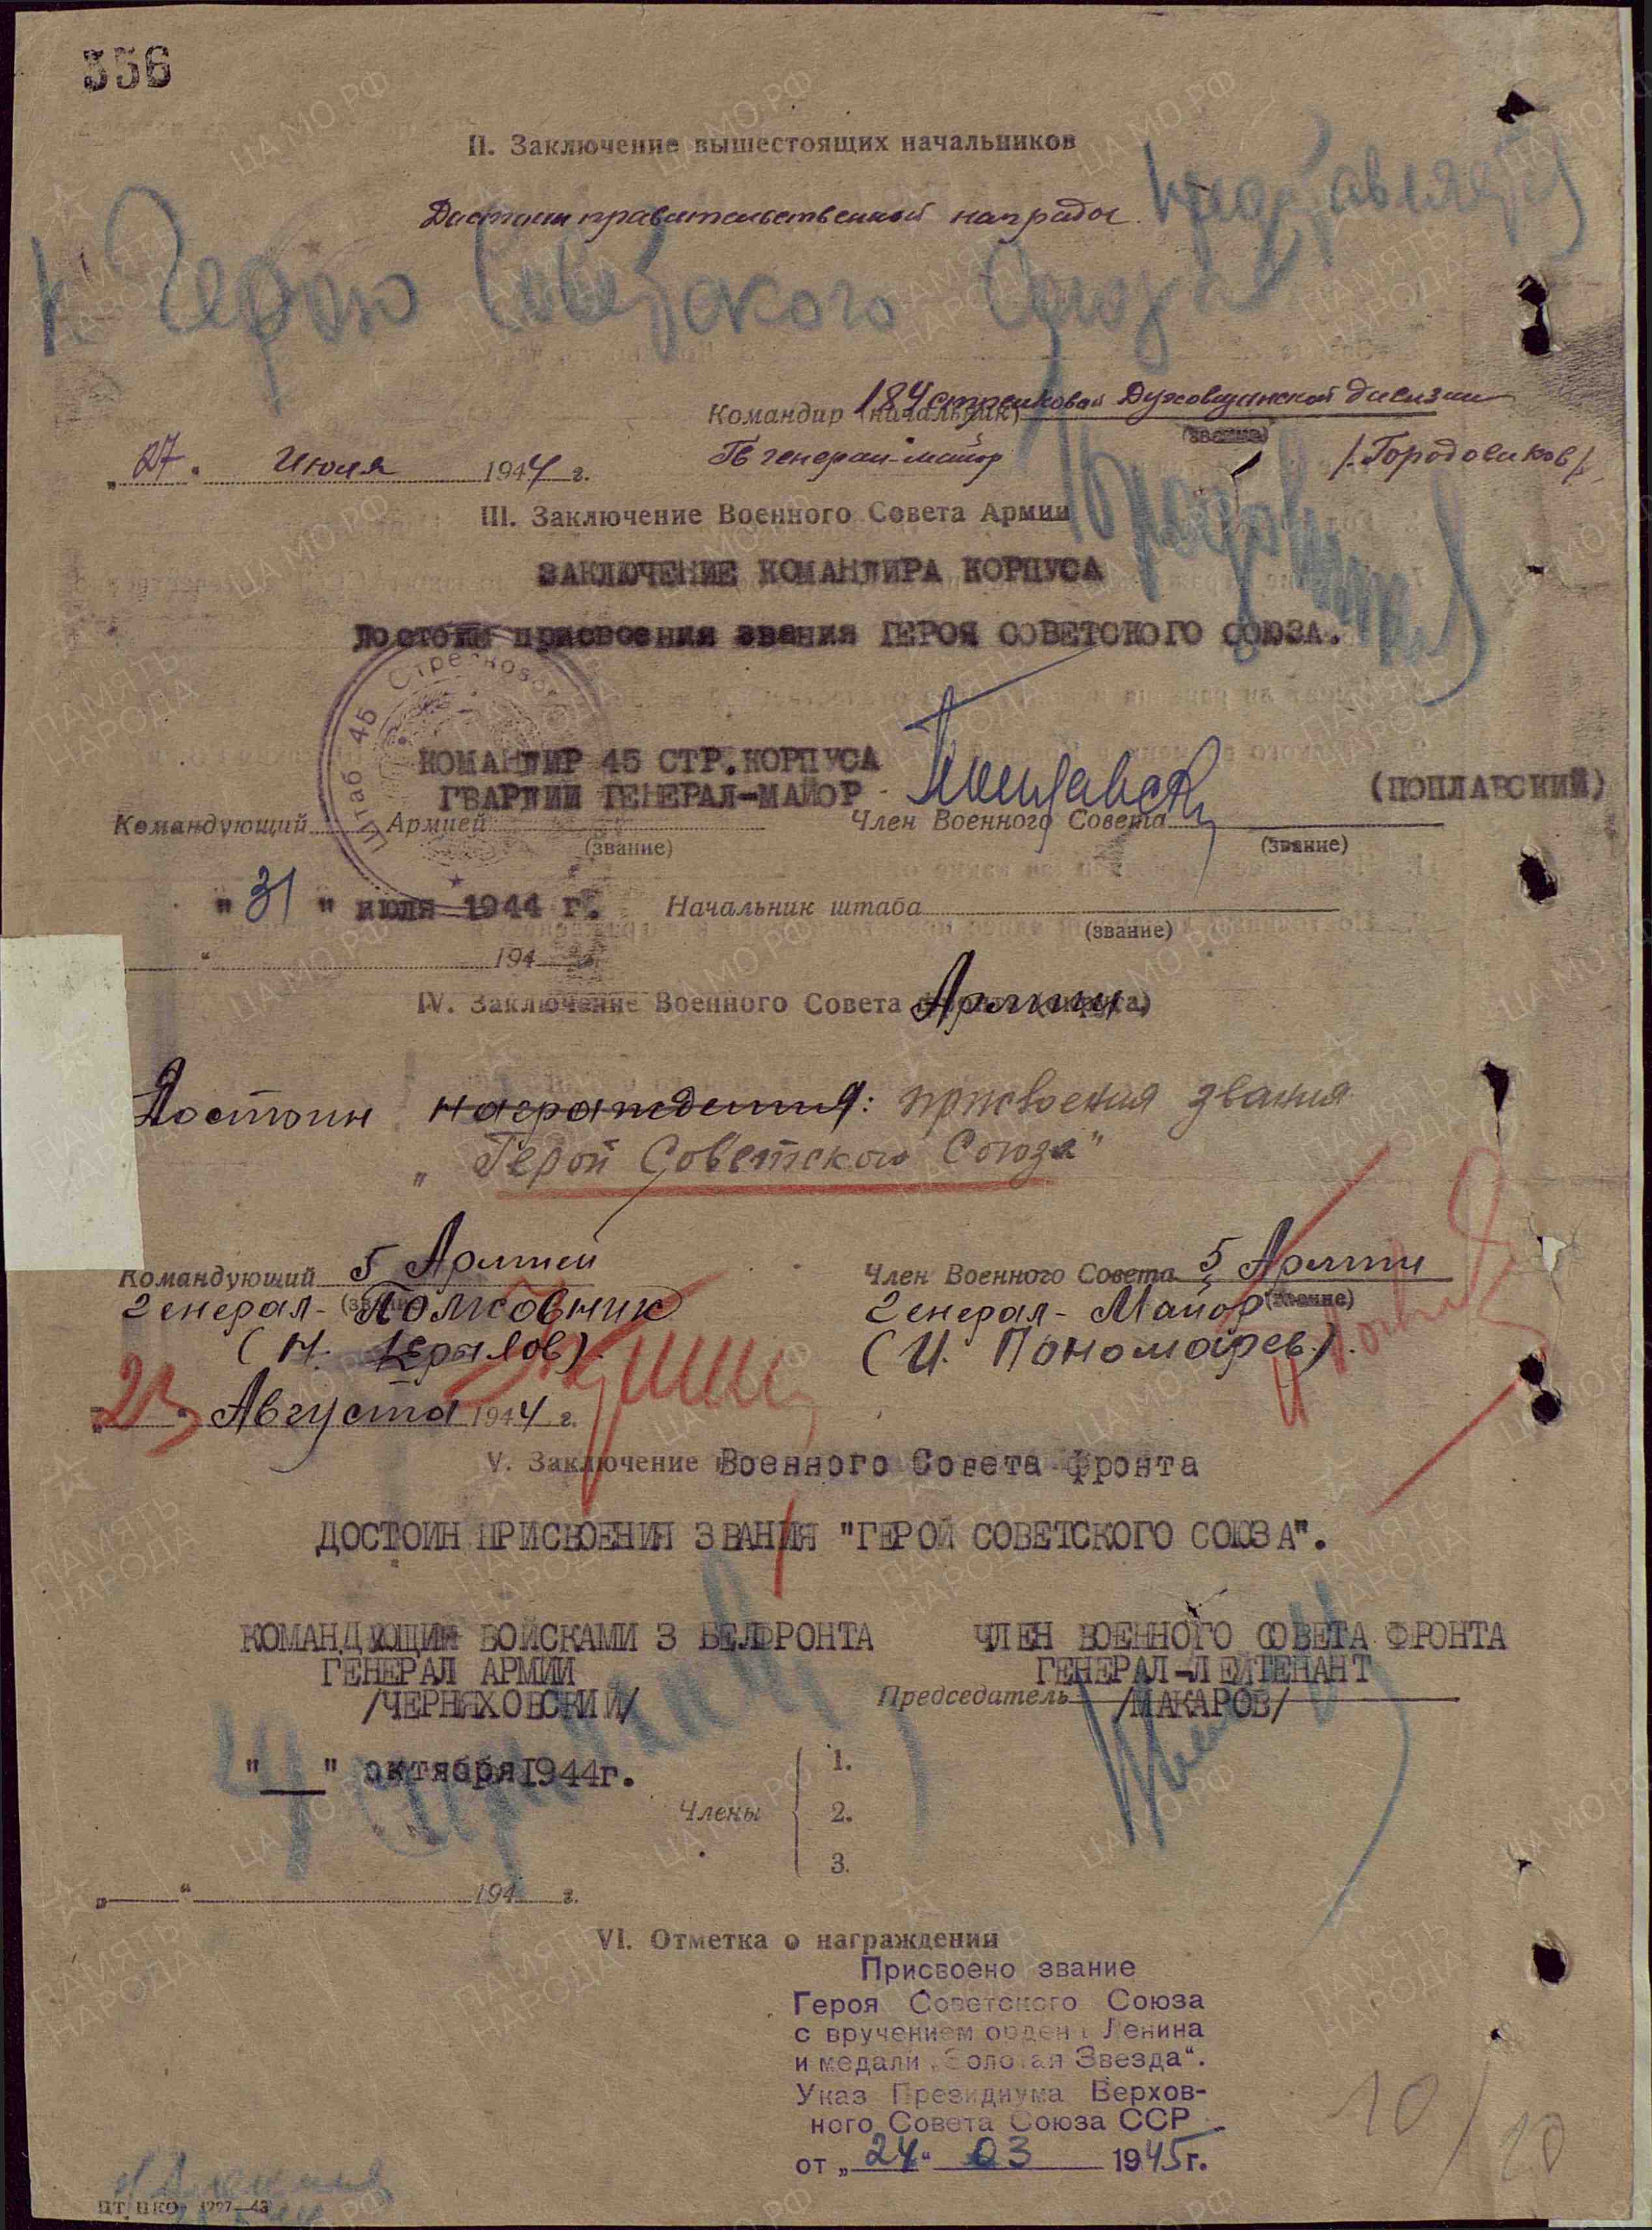 356
II. Заключение вышестоящих начальников
Достоин правительственной награды.
представляется
к Герою Советского Союза
Командир (начальник) 184 стрелковой Духовщинской дивизии
(звание)
„27" Июля 1944 г. Гв генерал-майор /Городовиков/
III. Заключение Военного Совета Армии
ЗАКЛЮЧЕНИЕ КОМАНДИРА КОРПУСА
Достоин присвоения звания ГЕРОЯ СОВЕТСКОГО СОЮЗА.
Штаб 45 Стрелкового
КОМАНДИР 45 СТР.КОРПУСА
ГВАРДИИ ГЕНЕРАЛ-МАЙОР (ПОПЛАВСКИЙ)
Командующий Армией Член Военного Совета
(звание) (звание)
"31" июля 1944 г. Начальник штаба
(звание)
" 194
IV. Заключение Военного Совета Армии
Достоин награждения: присвоения звания
„Герой Советского Союза"
Командующий 5 Армией Член Военного Совета 5 Армии
Генерал-Полковник Генерал-Майор (звание)
(Н. Крылов). (И. Пономарев).
„23" Августа 1944 г.
V. Заключение Военного Совета фронта
ДОСТОИН ПРИСВОЕНИЯ ЗВАНИЯ "ГЕРОЙ СОВЕТСКОГО СОЮЗА".
КОМАНДУЮЩИЙ ВОЙСКАМИ 3 БЕЛФРОНТА ЧЛЕН ВОЕННОГО СОВЕТА ФРОНТА
ГЕНЕРАЛ АРМИИ ГЕНЕРАЛ-ЛЕЙТЕНАНТ
/ЧЕРНЯХОВСКИЙ/ Председатель /МАКАРОВ/
"__" октября 1944г.
Члены
1.
2.
3.
„ " 194 г.
VI. Отметка о награждении
Присвоено звание
Героя Советского Союза
с вручением ордена Ленина
и медали „Золотая Звезда".
Указ Президиума Верхов-
ного Совета Союза ССР
от „24" 03 1945г.
10/10
ЦТ НКО 1227—43
ЦА МО РФ
ПАМЯТЬ НАРОДА